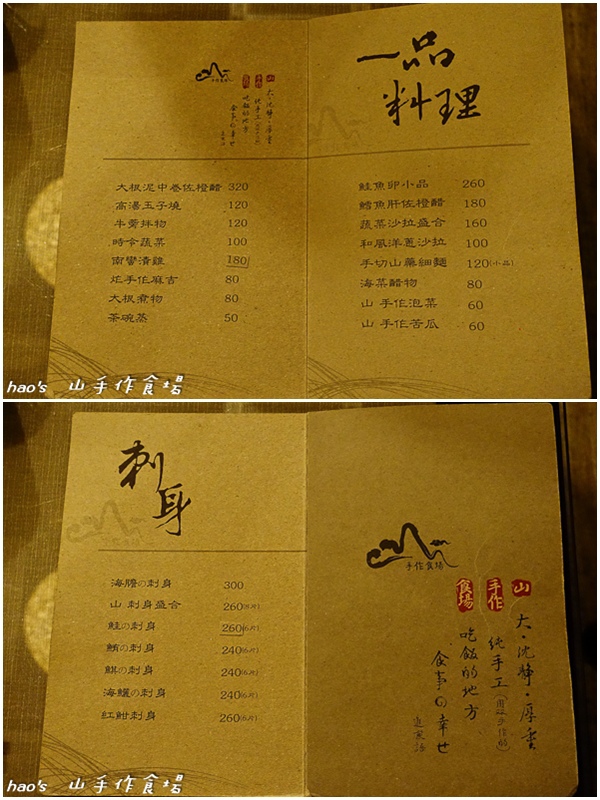 手作食場
山
手作
食場
大・沈靜・厚重
純手工
吃飯的地方
食事の幸せ
一品
料理
大根泥中卷佐橙醋 320
高湯玉子燒 120
牛蒡拌物 120
時令蔬菜 100
南蠻漬雞 180
炸手作麻吉 80
大根煮物 80
茶碗蒸 50
鮭魚卵小品 260
鱈魚肝佐橙醋 180
蔬菜沙拉盛合 160
和風洋蔥沙拉 100
手切山藥細麵 120(小品)
海菜醋物 80
山 手作泡菜 60
山 手作苦瓜 60
hao's 山手作食場
刺身
海膽の刺身 300
山 刺身盛合 260(6片)
鮭の刺身 260(6片)
鮪の刺身 240(6片)
鯕の刺身 240(6片)
海鱺の刺身 240(6片)
紅魽刺身 260(6片)
手作食場
山
手作
食場
大・沈靜・厚重
純手工
吃飯的地方
食事の幸せ
hao's 山手作食場